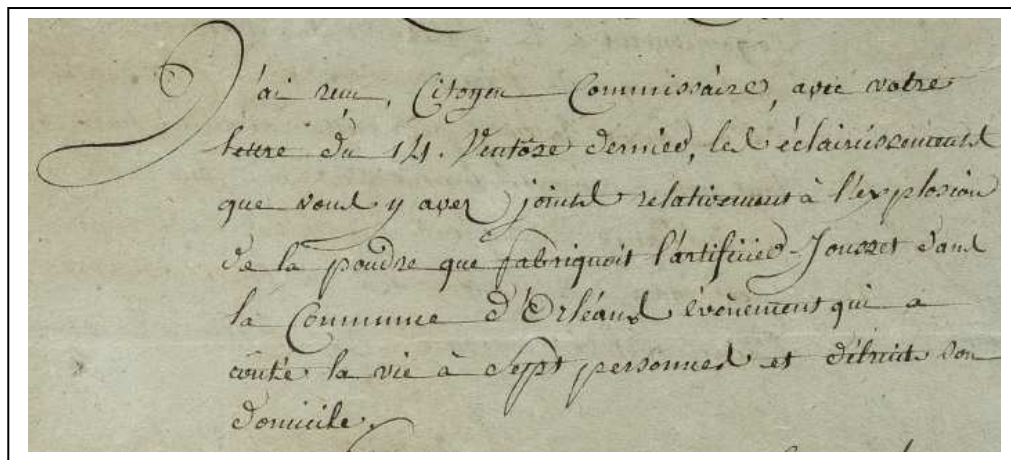 J'ai reçu, Citoyen Commissaire, avec votre
lettre du 14. Ventôse dernier, les éclaircissements
que vous y avez joints relativement à l'explosion
de la poudre que fabriquoit l'artificier Jousset dans
la Commune d'Orléans évènement qui a
coûté la vie à Sept personnes et détruit son
domicile.